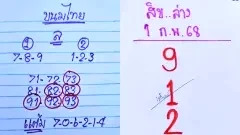 ขนมไทย
ล
① ②
7-8-9 1-2-3
71-72-73
81-82-83
91-92-93
แต้ม 7-0-6-2-1-4
สิบ..ล่าง
1 ก.พ. 68
9
1
2